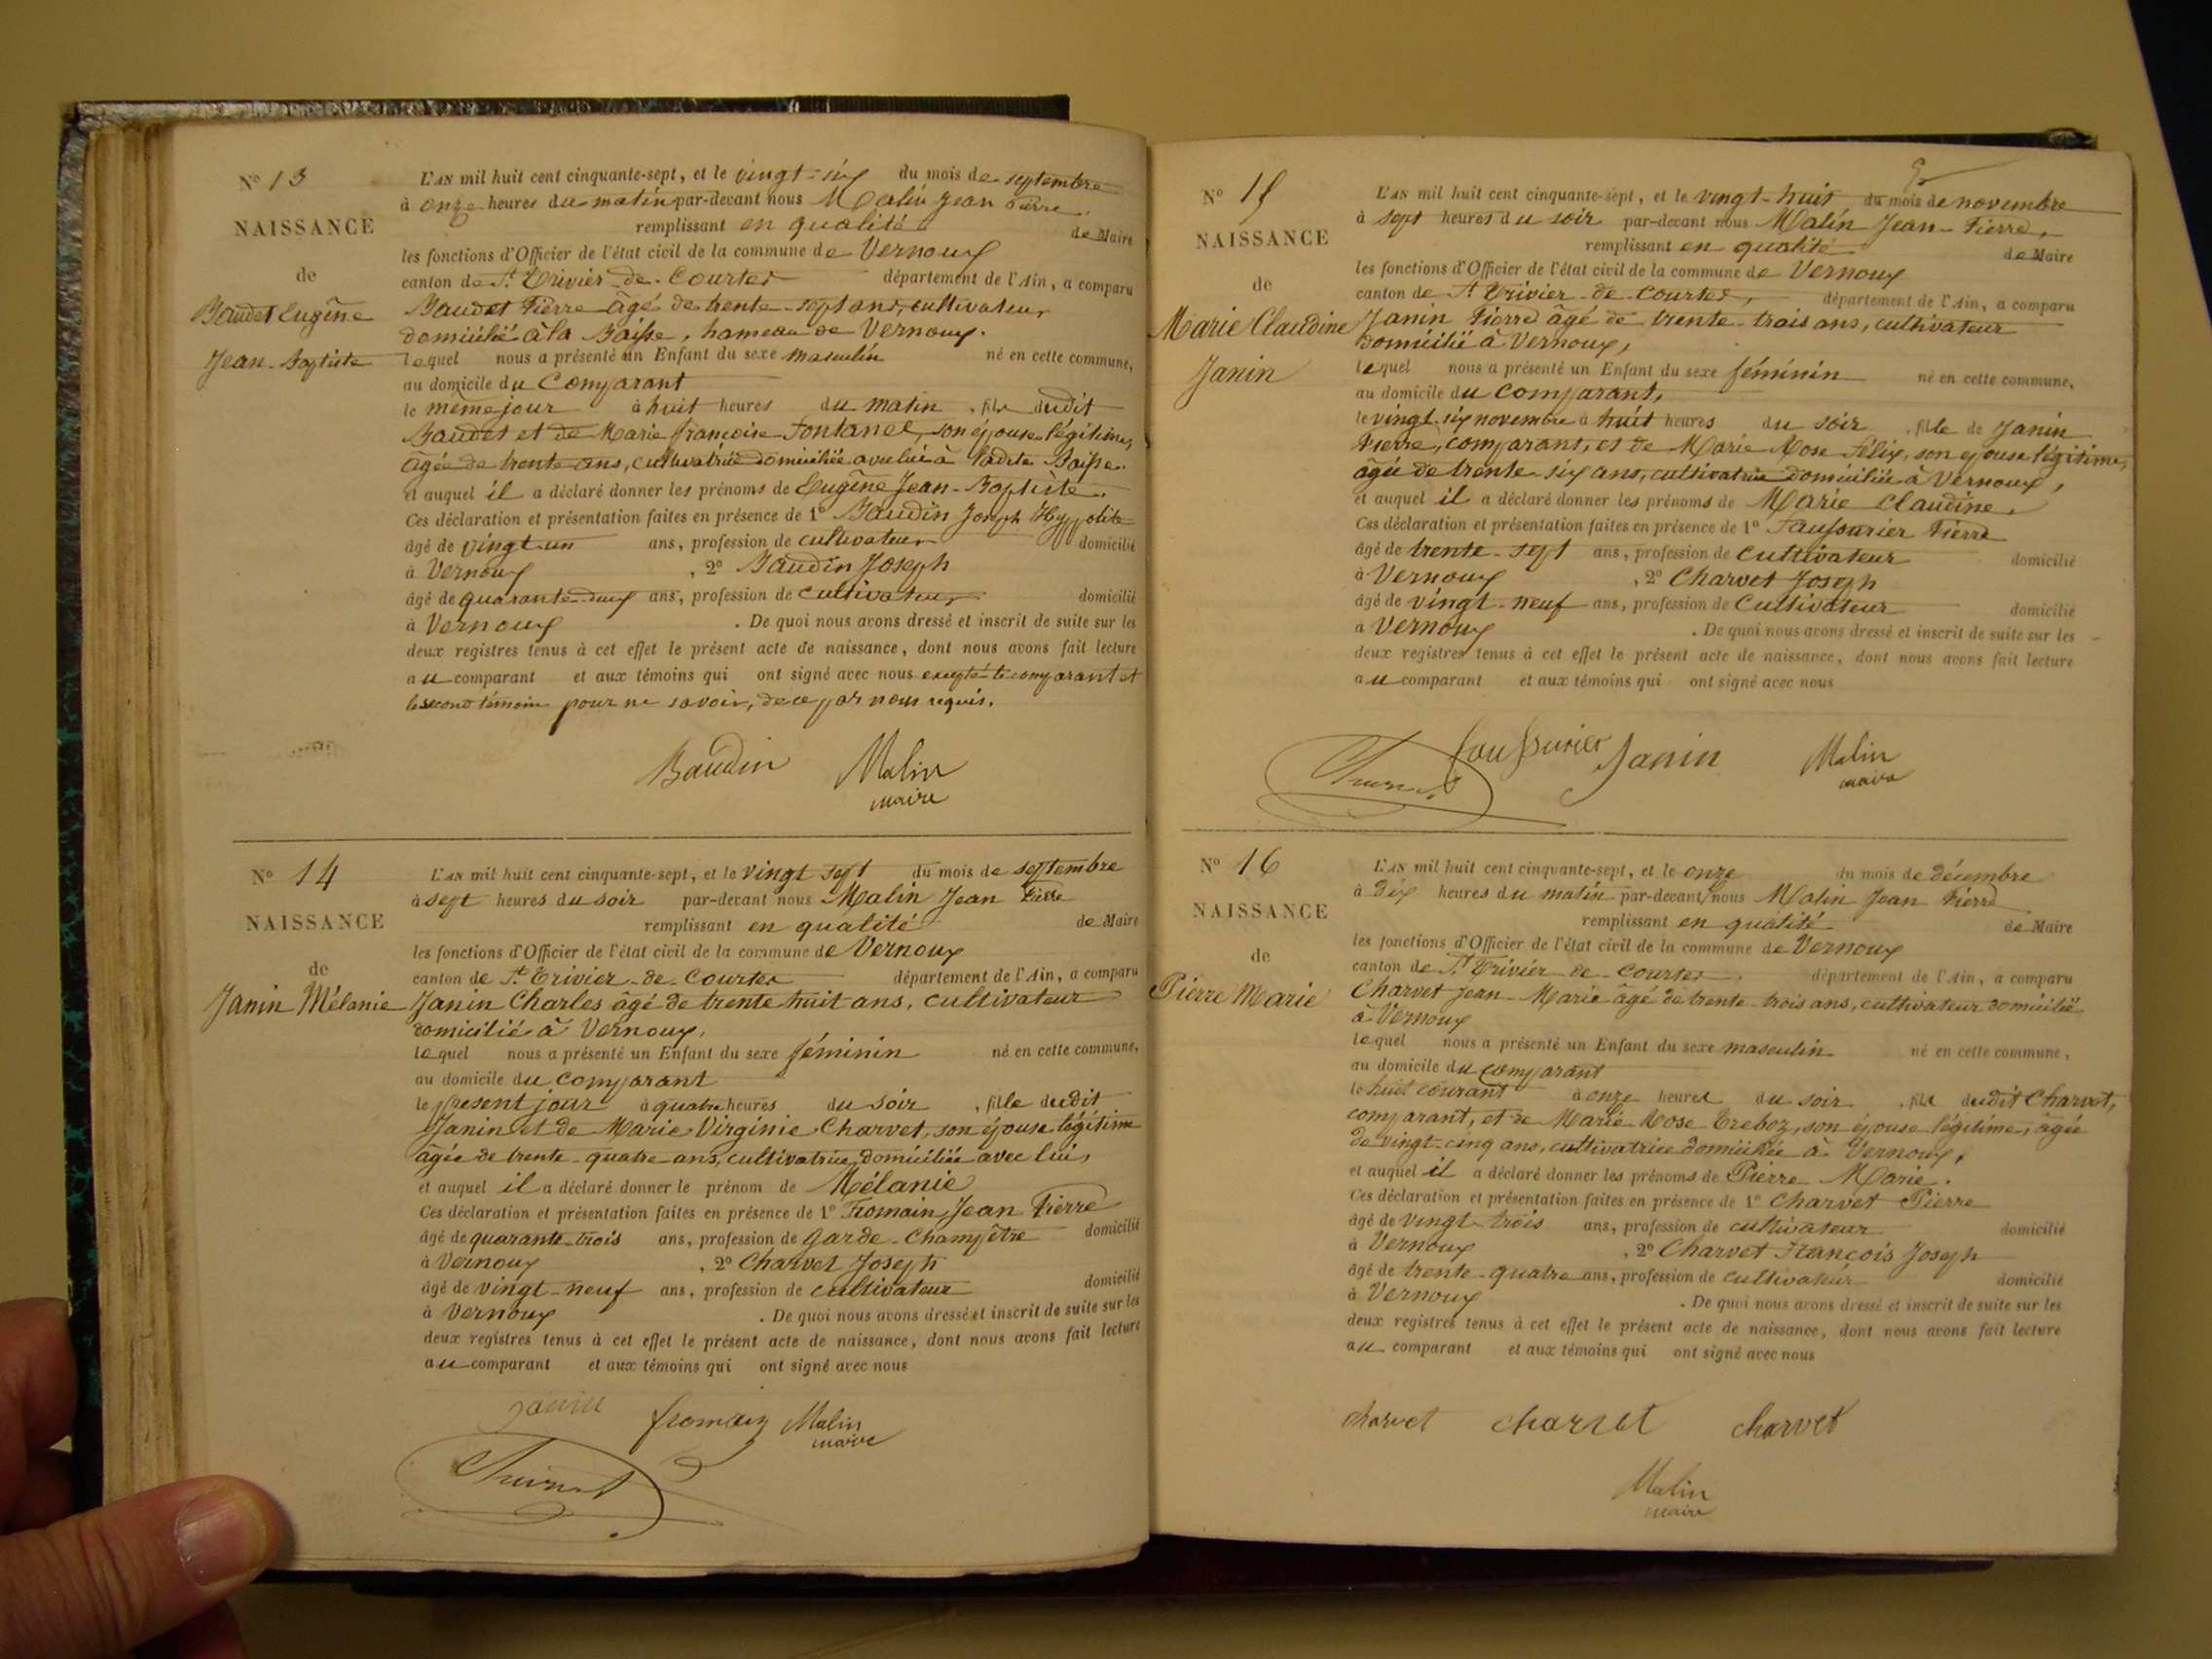 N° 13
NAISSANCE
de
Baudet Eugène
Jean-Baptiste
L'AN mil huit cent cinquante-sept, et le vingt-six du mois de septembre
à onze heures du matin par-devant nous Malin Jean Pierre
remplissant en qualité de Maire
les fonctions d'Officier de l'état civil de la commune de Vernoux
canton de St Trivier-de-Courtes département de l'Ain, a comparu
Baudet Pierre âgé de trente-sept ans, cultivateur
domicilié à la Baisse, hameau de Vernoux.
lequel nous a présenté un Enfant du sexe masculin né en cette commune,
au domicile du Comparant
le même jour à huit heures du matin, fils dudit
Baudet et de Marie Françoise Fontanel, son épouse légitime,
âgée de trente ans, cultivatrice domiciliée avec lui à ladite Baisse.
et auquel il a déclaré donner les prénoms de Eugène Jean-Baptiste.
Ces déclaration et présentation faites en présence de 1° Baudin Joseph Hyppolite
âgé de vingt-un ans, profession de cultivateur domicilié
à Vernoux, 2° Baudin Joseph
âgé de quarante-deux ans, profession de cultivateur domicilié
à Vernoux. De quoi nous avons dressé et inscrit de suite sur les
deux registres tenus à cet effet le présent acte de naissance, dont nous avons fait lecture
au comparant et aux témoins qui ont signé avec nous excepté le comparant et
le second témoin pour ne savoir, de ce par nous requis.
Baudin Malin
maire
N° 14
NAISSANCE
de
Janin Mélanie
L'AN mil huit cent cinquante-sept, et le vingt sept du mois de septembre
à sept heures du soir par-devant nous Malin Jean Pierre
remplissant en qualité de Maire
les fonctions d'Officier de l'état civil de la commune de Vernoux
canton de St Trivier-de-Courtes département de l'Ain, a comparu
Janin Charles âgé de trente huit ans, cultivateur
domicilié à Vernoux,
lequel nous a présenté un Enfant du sexe féminin né en cette commune,
au domicile du comparant
le présent jour à quatre heures du soir, fille dudit
Janin et de Marie Virginie Charvet, son épouse légitime
âgée de trente-quatre ans, cultivatrice, domiciliée avec lui,
et auquel il a déclaré donner le prénom de Mélanie
Ces déclaration et présentation faites en présence de 1° Fromain Jean Pierre
âgé de quarante-trois ans, profession de garde-champêtre domicilié
à Vernoux, 2° Charvet Joseph
âgé de vingt-neuf ans, profession de cultivateur domicilié
à Vernoux. De quoi nous avons dressé et inscrit de suite sur les
deux registres tenus à cet effet le présent acte de naissance, dont nous avons fait lecture
au comparant et aux témoins qui ont signé avec nous
Janin fromain Malin
maire
N° 15
NAISSANCE
de
Marie Claudine
Janin
L'AN mil huit cent cinquante-sept, et le vingt-huit du mois de novembre
à sept heures du soir par-devant nous Malin Jean-Pierre,
remplissant en qualité de Maire
les fonctions d'Officier de l'état civil de la commune de Vernoux
canton de St Trivier-de-Courtes, département de l'Ain, a comparu
Janin Pierre âgé de trente-trois ans, cultivateur
domicilié à Vernoux,
lequel nous a présenté un Enfant du sexe féminin né en cette commune,
au domicile du comparant,
le vingt-six novembre à huit heures du soir, fille de Janin
Pierre, comparant, et de Marie Rose Félix, son épouse légitime,
âgée de trente-six ans, cultivatrice domiciliée à Vernoux,
et auquel il a déclaré donner les prénoms de Marie Claudine.
Ces déclaration et présentation faites en présence de 1° Faussurier Pierre
âgé de trente-sept ans, profession de cultivateur domicilié
à Vernoux, 2° Charvet Joseph
âgé de vingt-neuf ans, profession de Cultivateur domicilié
à Vernoux. De quoi nous avons dressé et inscrit de suite sur les
deux registres tenus à cet effet le présent acte de naissance, dont nous avons fait lecture
au comparant et aux témoins qui ont signé avec nous
faussurier Janin Malin
maire
N° 16
NAISSANCE
de
Pierre Marie
L'AN mil huit cent cinquante-sept, et le onze du mois de décembre
à dix heures du matin par-devant nous Malin Jean Pierre
remplissant en qualité de Maire
les fonctions d'Officier de l'état civil de la commune de Vernoux
canton de St Trivier-de-Courtes département de l'Ain, a comparu
Charvet Jean-Marie âgé de trente-trois ans, cultivateur domicilié
à Vernoux
lequel nous a présenté un Enfant du sexe masculin né en cette commune,
au domicile du comparant
le huit courant à onze heures du soir, fils dudit Charvet,
comparant, et de Marie Rose Treboz, son épouse légitime, âgée
de vingt-cinq ans, cultivatrice domiciliée à Vernoux,
et auquel il a déclaré donner les prénoms de Pierre Marie.
Ces déclaration et présentation faites en présence de 1° Charvet Pierre
âgé de vingt-trois ans, profession de cultivateur domicilié
à Vernoux, 2° Charvet François Joseph
âgé de trente-quatre ans, profession de cultivateur domicilié
à Vernoux. De quoi nous avons dressé et inscrit de suite sur les
deux registres tenus à cet effet le présent acte de naissance, dont nous avons fait lecture
au comparant et aux témoins qui ont signé avec nous
charvet charvet charvet
Malin
maire